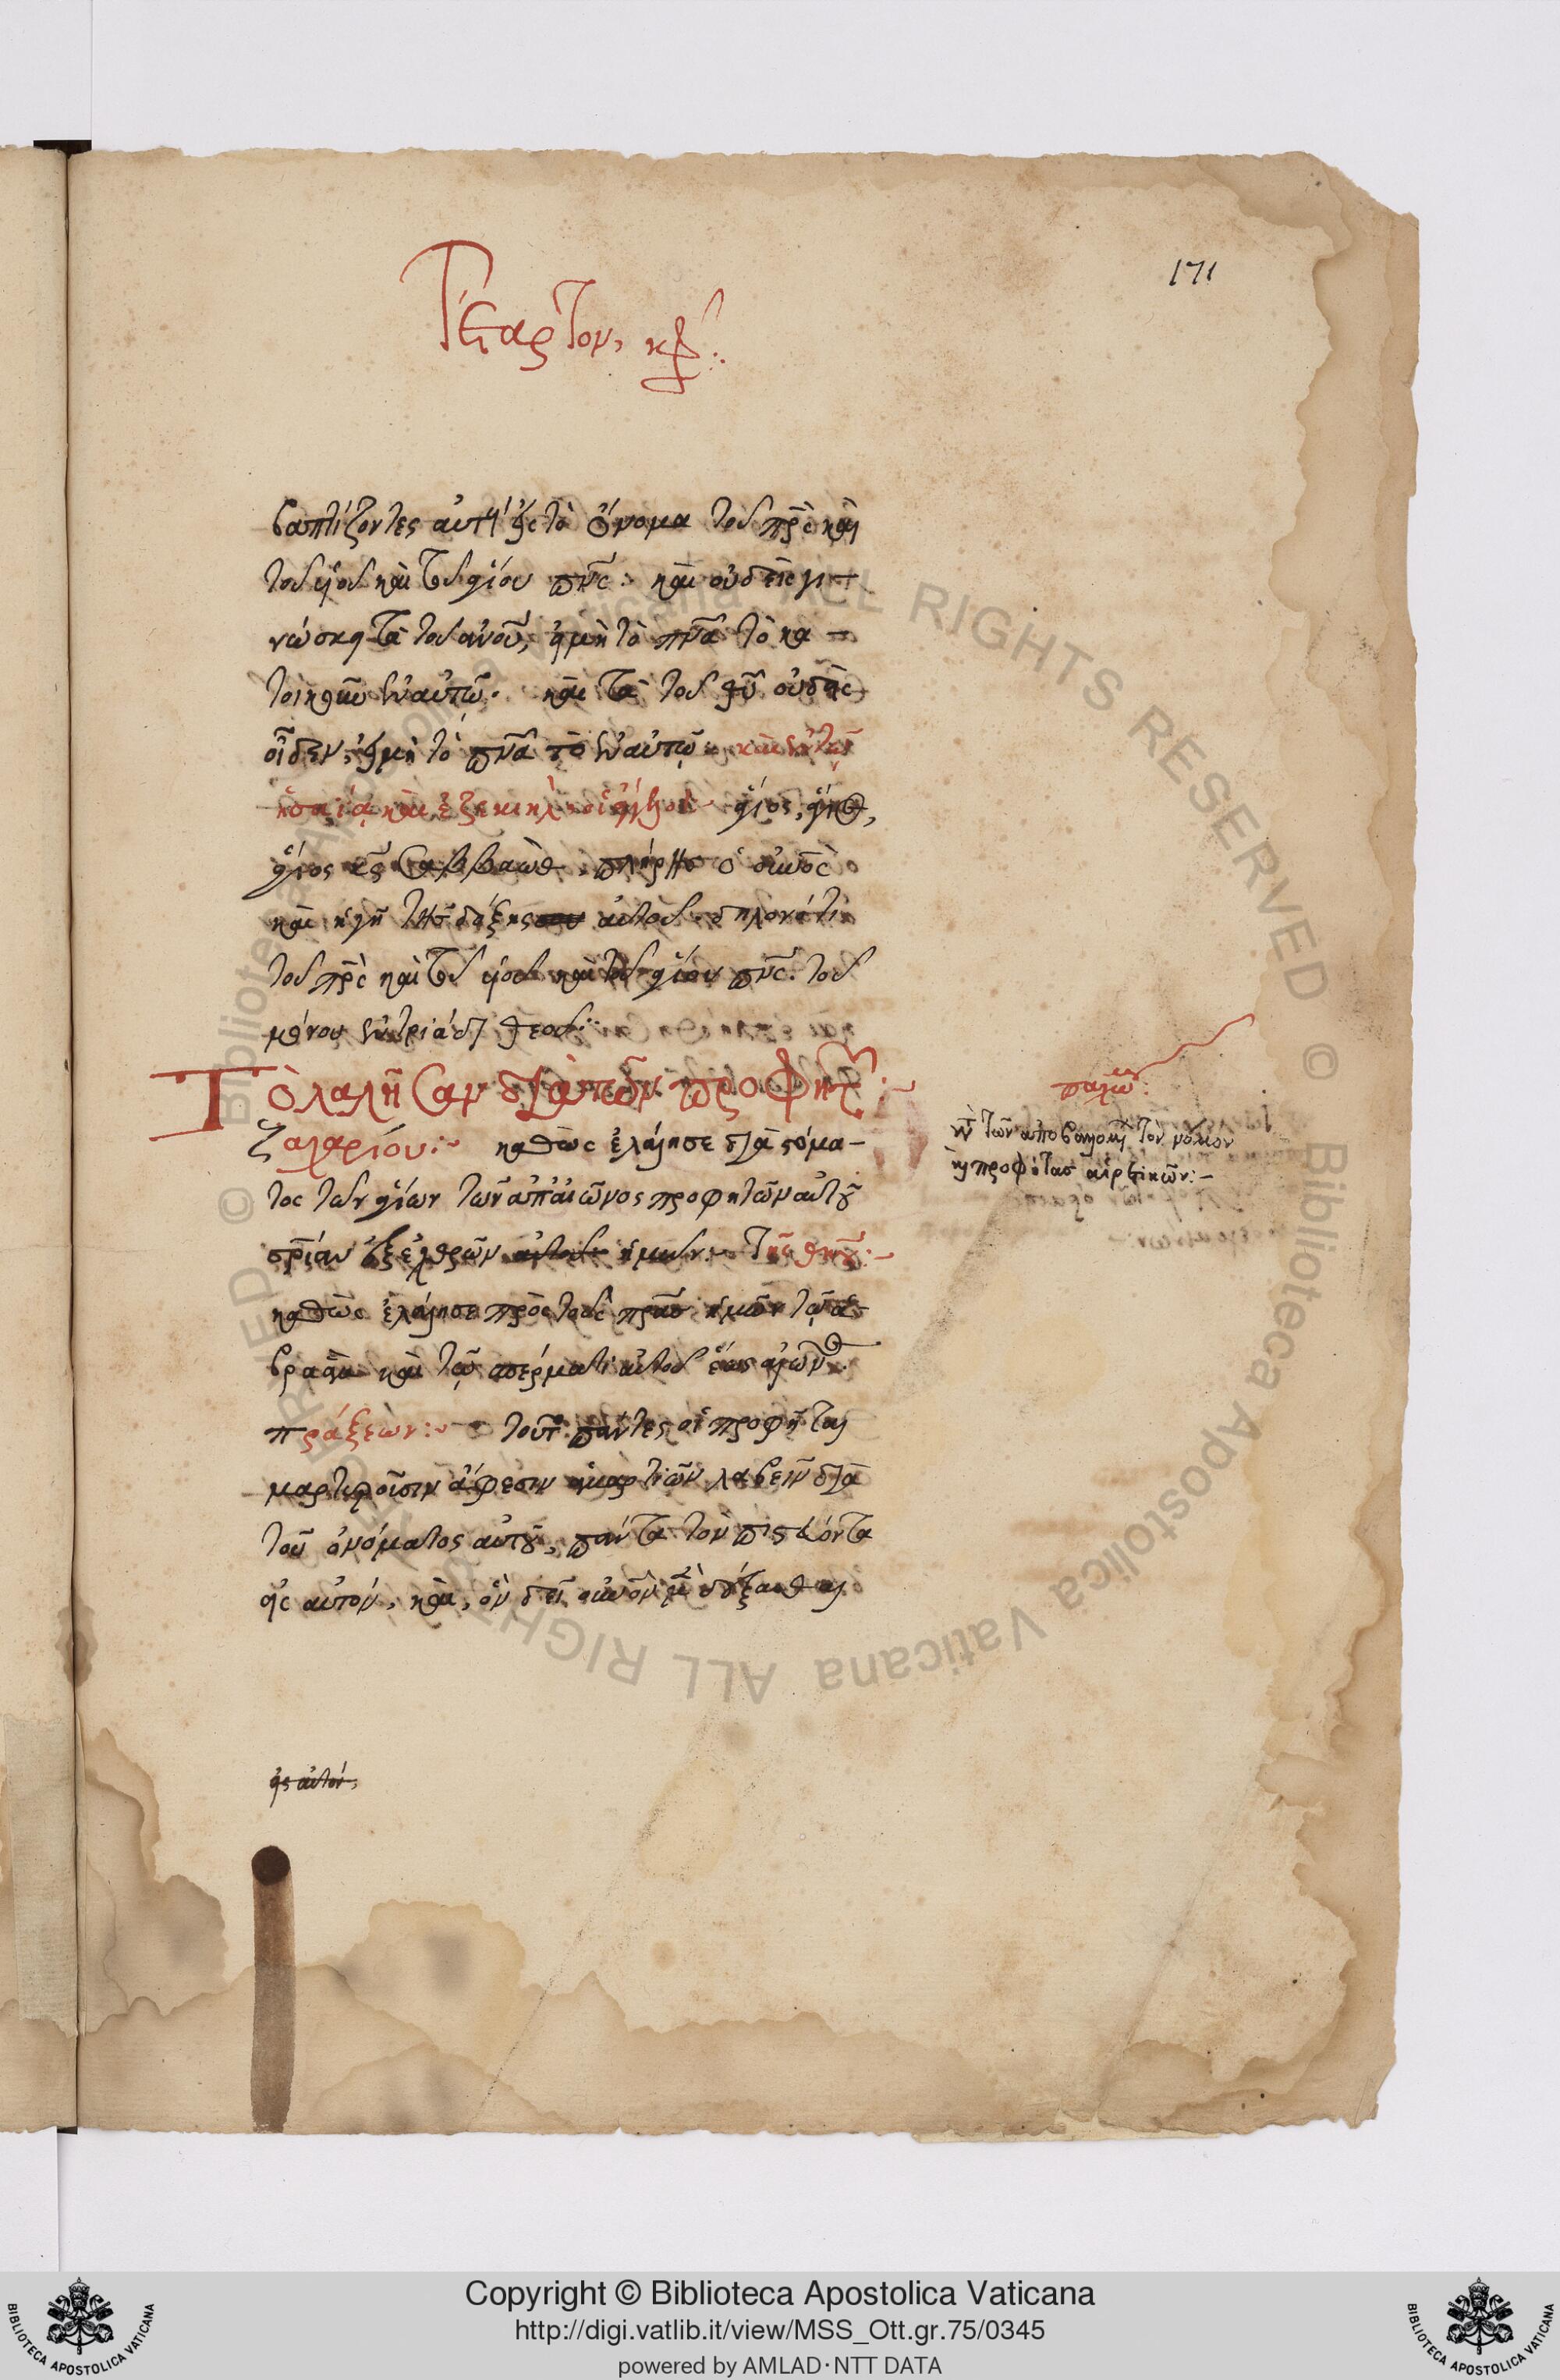 171
Τέταρτον, κεφ.
βαπτίζοντες αὐτοὺς εἰς τὸ ὄνομα τοῦ πρς καὶ
τοῦ υἱοῦ καὶ τοῦ ἁγίου πνς· καὶ οὐδεὶς γι-
νώσκει τὰ τοῦ ανου, εἰ μὴ τὸ πνα τὸ κα-
τοικοῦν ἐν αὐτῶ· καὶ τὰ τοῦ θυ οὐδεὶς
οἶδεν, εἰ μὴ τὸ πνα τὸ ἐν αὐτῶ καὶ ἐν τῶ
ἡσαΐα καὶ ἐζεκιὴλ ἅγιος, ἅγιος,
ἅγιος κς σαββαὼθ πλήρης ὁ οὐνος
καὶ ἡ γῆ τῆς δόξης αὐτοῦ δηλονότι
τοῦ πρς καὶ τοῦ υἱοῦ καὶ τοῦ ἁγίου πνς· τοῦ
μόνου ἐν τριάδι θεοῦ:
Τὸ λαλῆσαν διὰ τῶν προφητῶν:
ζαχαρίου: καθὼς ἐλάλησε διὰ στόμα-
τος τῶν ἁγίων τῶν ἀπ' αἰῶνος προφητῶν αὐτοῦ
σρίαν ἐξ ἐχθρῶν ἡμῶν: τῆς θκου:
καθὼς ἐλάλησε πρὸς τοὺς πρας ἡμῶν τῶ ἀ-
βραὰμ καὶ τῶ σπέρματι αὐτοῦ ἕως αἰῶνος.
πράξεων: τούτω πάντες οἱ προφῆται
μαρτυροῦσιν ἄφεσιν ἁμαρτιῶν λαβεῖν διὰ
τοῦ ὀνόματος αὐτοῦ, πάντα τὸν πιστεύοντα
εἰς αὐτόν, καὶ, ὃν δεῖ οὐνὸν μὲν δέξασθαι
κατὰ τῶν ἀποβαλλομένων τὸν νόμον
καὶ προφήτας αἱρετικῶν:-
εἰς αὐτόν,
Copyright © Biblioteca Apostolica Vaticana
http://digi.vatlib.it/view/MSS_Ott.gr.75/0345
powered by AMLAD·NTT DATA
BIBLIOTECA APOSTOLICA VATICANA
BIBLIOTECA APOSTOLICA VATICANA
© Biblioteca Apostolica Vaticana ALL RIGHTS RESERVED © Biblioteca Apostolica Vaticana ALL RIGHTS RESERVED